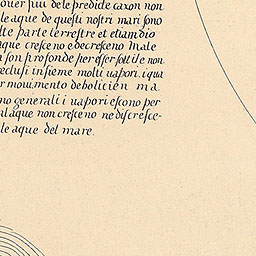 ouer fuu dele predicte caxon non
le aque de questi nostri mari sono
lte parte terrestre et etiamdio
aque cresceno e decresceno male
a son profonde per esser sottile non
reclusi insieme molti uapori, iqua
r mouimento debolicien ma
no generali i uapori escono per
al aque non cresceno ne discresce-
le aque del mare.